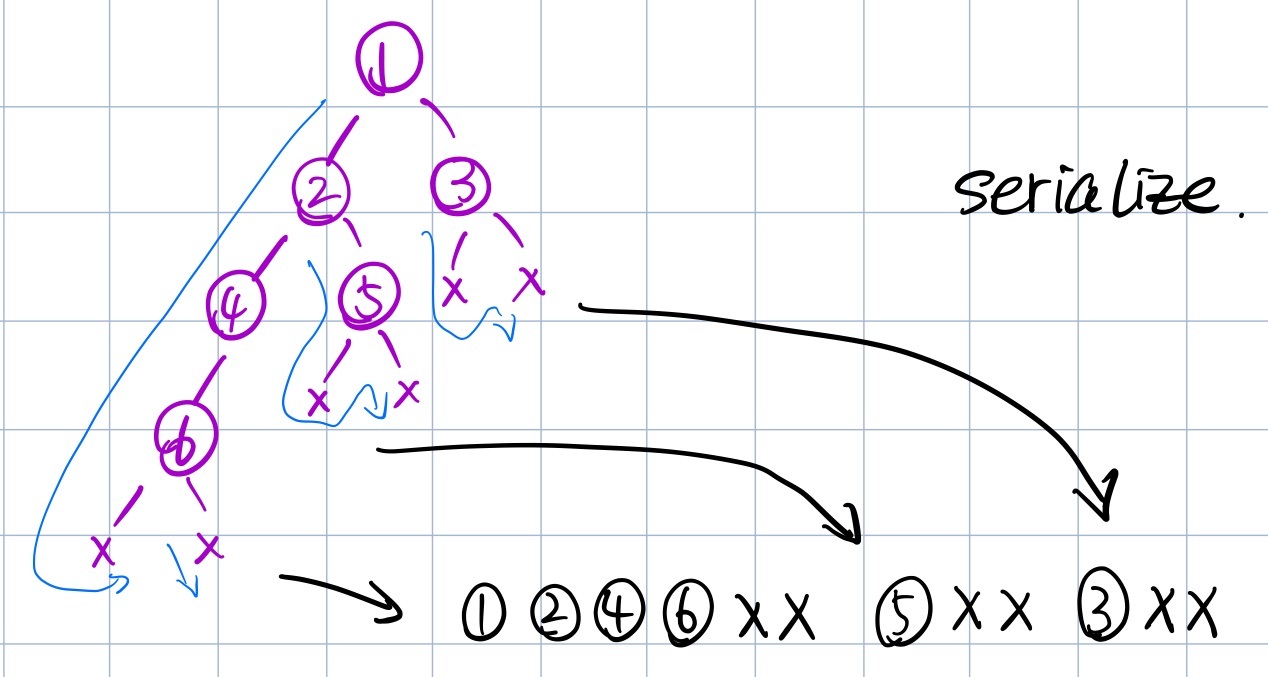 1
2 3
serialize.
4 5 x x
6 x x
x x
① ② ④ ⑥ X X ⑤ X X ③ X X